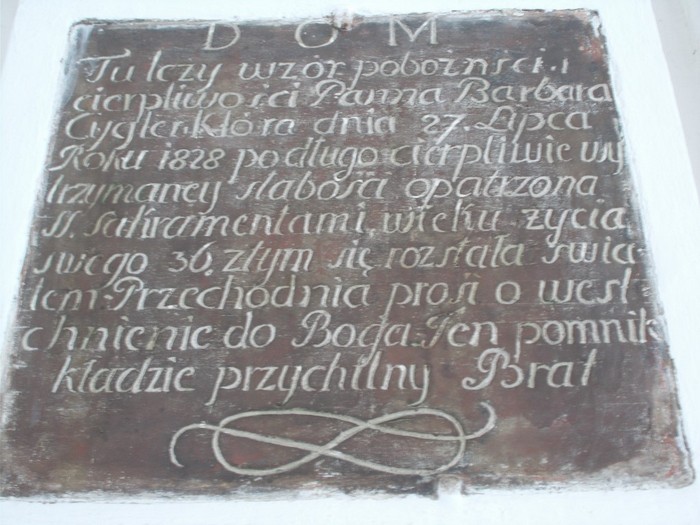 D O M
Tu lezy wzór poboznsci i
cierpliwości Panna Barbara
Cygler. Która dnia 27. Lipca
Roku 1828 podługo cierpliwie wy
trzymaney słabości opatrzona
SS. sakramentami, wieku życia
swego 36. ztym się rozstała świa-
tem. Przechodnia prosi o west
chnienie do Boga. Ten pomnik
kładzie przychilny Brat